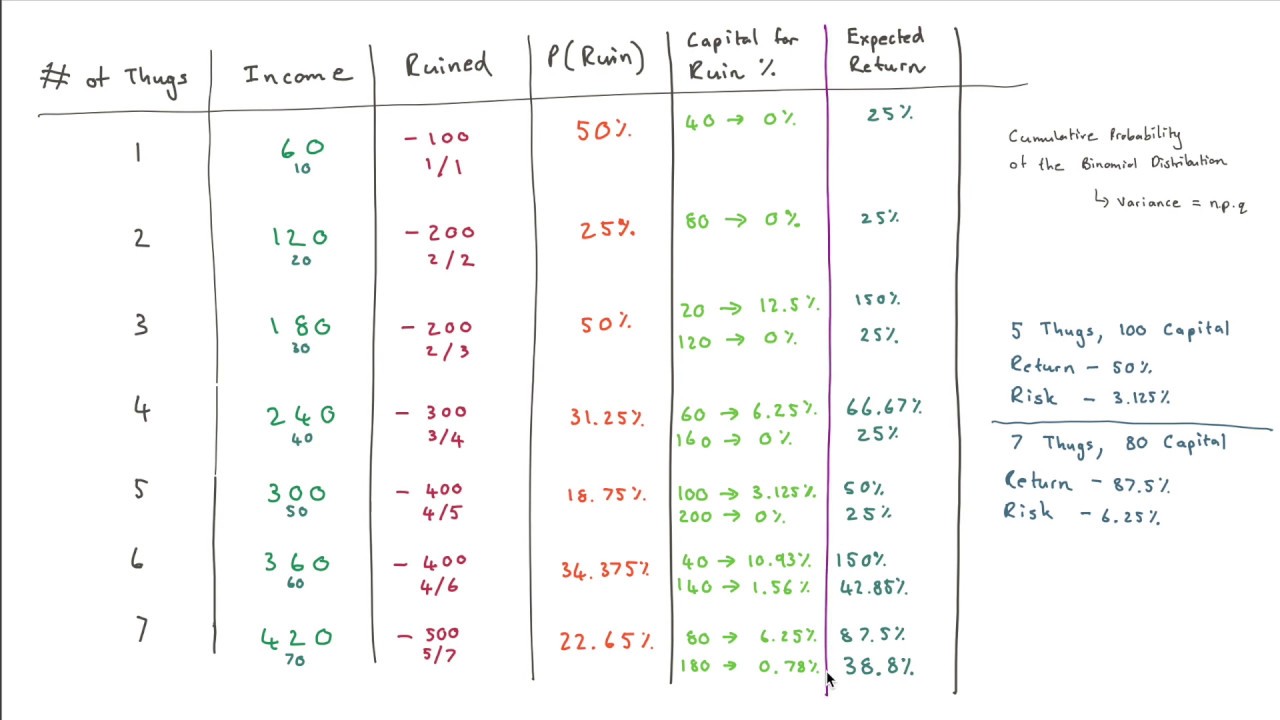 # of Thugs Income Ruined P(Ruin) Capital for Ruin % Expected Return
1 60 - 100 50% 40 → 0% 25%
10 1/1
2 120 - 200 25% 80 → 0% 25%
20 2/2
3 180 - 200 50% 20 → 12.5% 150%
30 2/3 120 → 0% 25%
4 240 - 300 31.25% 60 → 6.25% 66.67%
40 3/4 160 → 0% 25%
5 300 - 400 18.75% 100 → 3.125% 50%
50 4/5 200 → 0% 25%
6 360 - 400 34.375% 40 → 10.93% 150%
60 4/6 140 → 1.56% 42.85%
7 420 - 500 22.65% 80 → 6.25% 87.5%
70 5/7 180 → 0.78% 38.8%
Cumulative Probability
of the Binomial Distribution
↳ variance = n.p.q
5 Thugs, 100 Capital
Return - 50%
Risk - 3.125%
7 Thugs, 80 Capital
Return - 87.5%
Risk - 6.25%